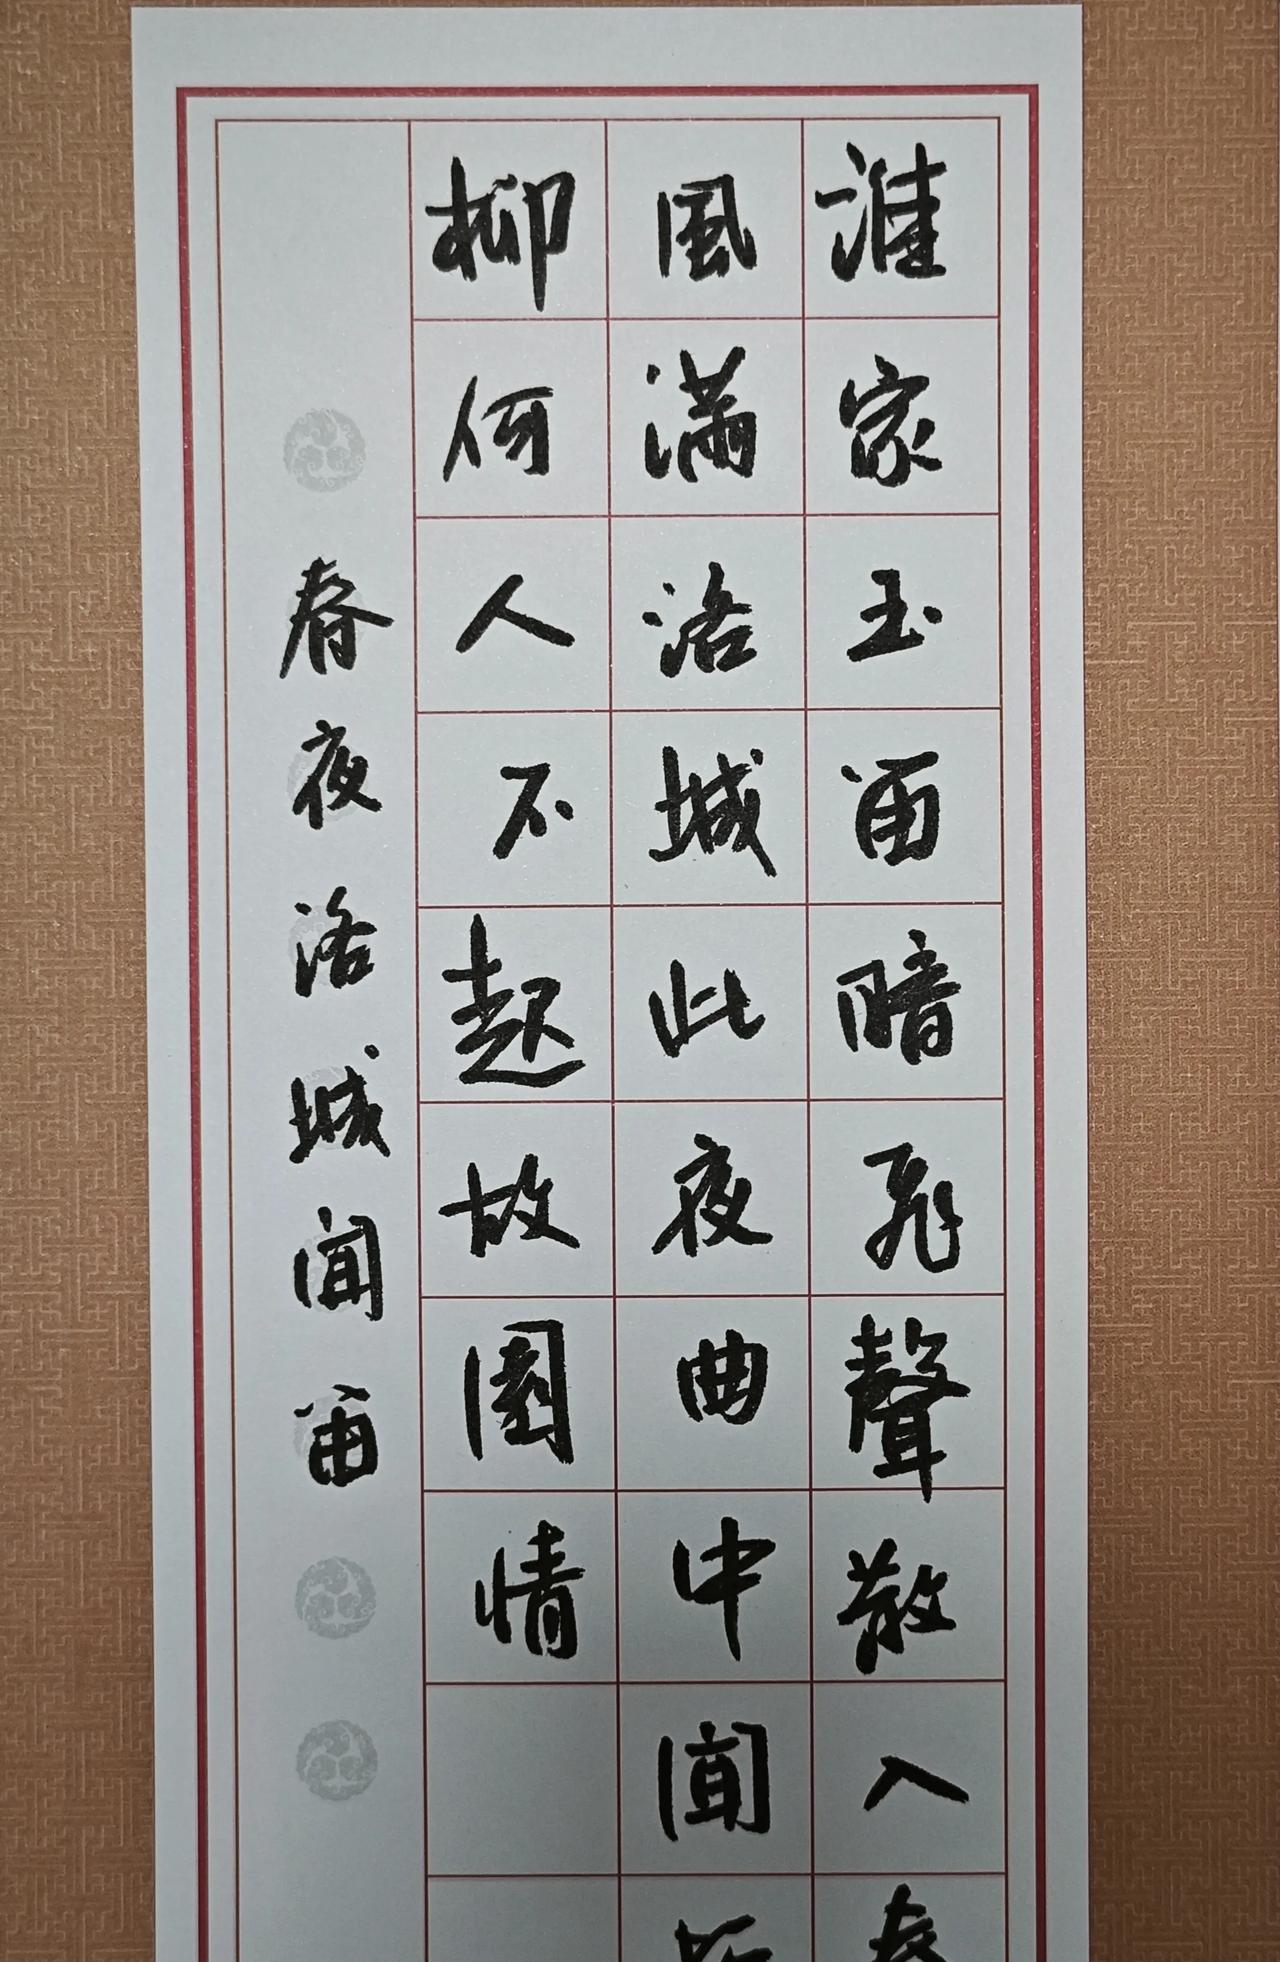 誰家玉笛暗飛聲散入春
風滿洛城此夜曲中聞折
柳何人不起故園情
春夜洛城聞笛